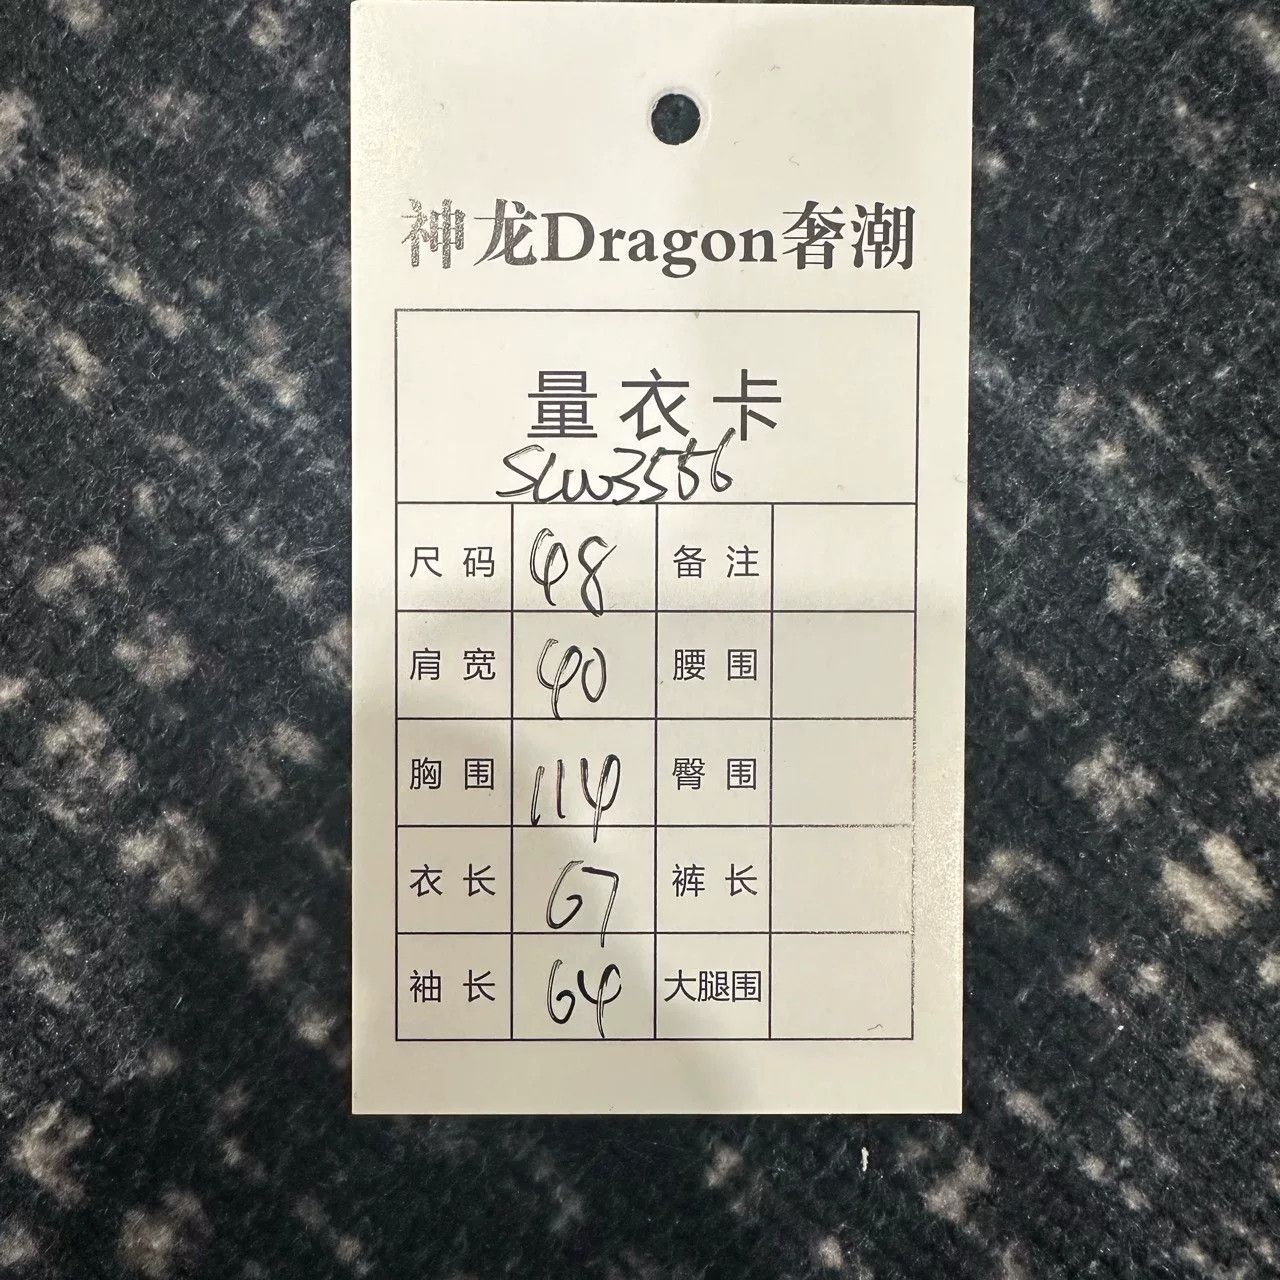 神龙Dragon奢潮
量衣卡
SLW3556
尺码 48 备注
肩宽 40 腰围
胸围 114 臀围
衣长 67 裤长
袖长 64 大腿围